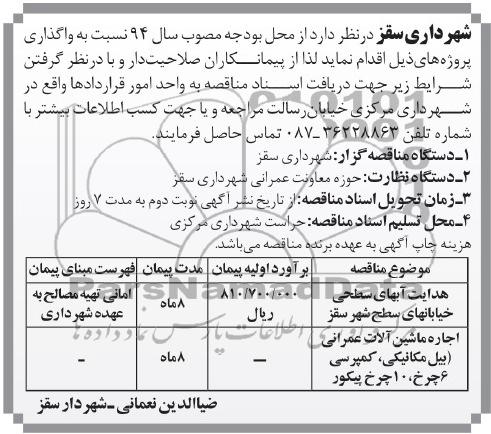 شهرداری سقز درنظر دارد از محل بودجه مصوب سال ۹۴ نسبت به واگذاری
پروژه‌های ذیل اقدام نماید لذا از پیمانکاران صلاحیت‌دار و با درنظر گرفتن
شرایط زیر جهت دریافت اسناد مناقصه به واحد امور قراردادها واقع در
شهرداری مرکزی خیابان رسالت مراجعه و یا جهت کسب اطلاعات بیشتر با
شماره تلفن ۳۶۲۲۸۸۶۳-۰۸۷ تماس حاصل فرمایند.
۱-دستگاه مناقصه گزار: شهرداری سقز
۲-دستگاه نظارت: حوزه معاونت عمرانی شهرداری سقز
۳-زمان تحویل اسناد مناقصه: از تاریخ نشر آگهی نوبت دوم به مدت ۷ روز
۴-محل تسلیم اسناد مناقصه: حراست شهرداری مرکزی
هزینه چاپ آگهی به عهده برنده مناقصه می‌باشد.
موضوع مناقصه برآورد اولیه پیمان مدت پیمان فهرست مبنای پیمان
هدایت آبهای سطحی خیابانهای سطح شهر سقز ۸۱۰/۷۰۰/۰۰۰ ریال ۸ماه امانی تهیه مصالح به عهده شهرداری
اجاره ماشین آلات عمرانی (بیل مکانیکی، کمپرسی ۶چرخ، ۱۰چرخ پیکور — ۸ماه -
ضیاالدین نعمانی - شهردار سقز
ParsNamadData